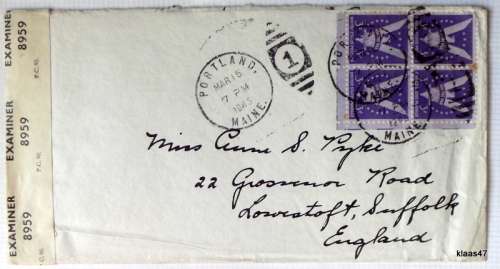 EXAMINER 8959
P.C. 90.
EXAMINER 8959
P.C. 90.
EXAMINER 8959
P.C. 90.
PORTLAND,
MAR 15
7 PM
MAINE.
1
PORTLAND
MAINE.
Miss Anne S. Pyke
22 Grosvenor Road
Lowestoft, Suffolk
England
klaas47